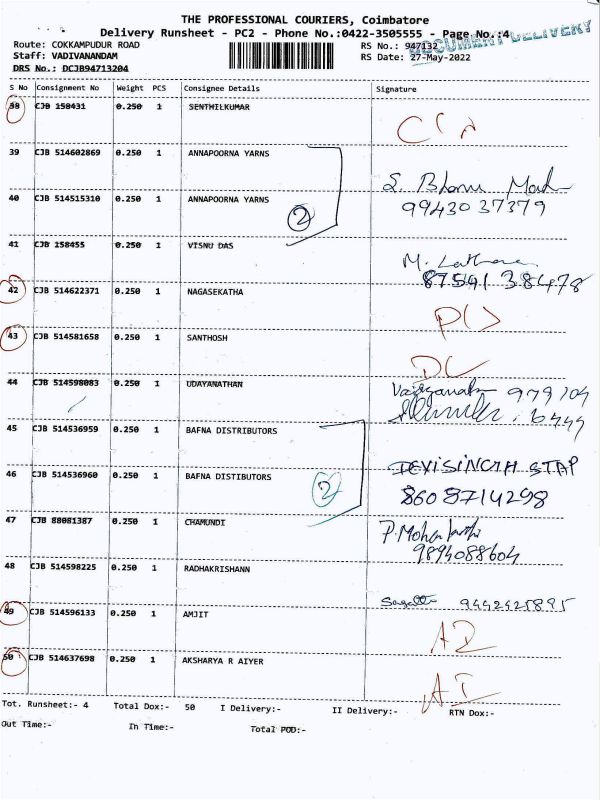 THE PROFESSIONAL COURIERS, Coimbatore
Delivery Runsheet - PC2 - Phone No.:0422-3505555 - Page No.:4
DOCUMENT DELIVERY
Route: COKKAMPUDUR ROAD RS No.: 947132
Staff: VADIVANANDAM RS Date: 27-May-2022
DRS No.: DCJB94713204
S No Consignment No Weight PCS Consignee Details Signature
38 CJB 158431 0.250 1 SENTHILKUMAR
39 CJB 514602869 0.250 1 ANNAPOORNA YARNS
40 CJB 514515310 0.250 1 ANNAPOORNA YARNS
2
9943037379
41 CJB 158455 0.250 1 VISNU DAS
87541 38478
42 CJB 514622371 0.250 1 NAGASEKATHA
43 CJB 514581658 0.250 1 SANTHOSH
DL
44 CJB 514598083 0.250 1 UDAYANATHAN
979704
6449
45 CJB 514536959 0.250 1 BAFNA DISTRIBUTORS
46 CJB 514536960 0.250 1 BAFNA DISTIBUTORS
2
DEVISINGH STAP
8608714298
47 CJB 88081387 0.250 1 CHAMUNDI
9894088604
48 CJB 514598225 0.250 1 RADHAKRISHANN
9442425895
49 CJB 514596133 0.250 1 AMJIT
AI
50 CJB 514637698 0.250 1 AKSHARYA R AIYER
AI
Tot. Runsheet:- 4 Total Dox:- 50 I Delivery:- II Delivery:- RTN Dox:-
Out Time:- In Time:- Total POD:-